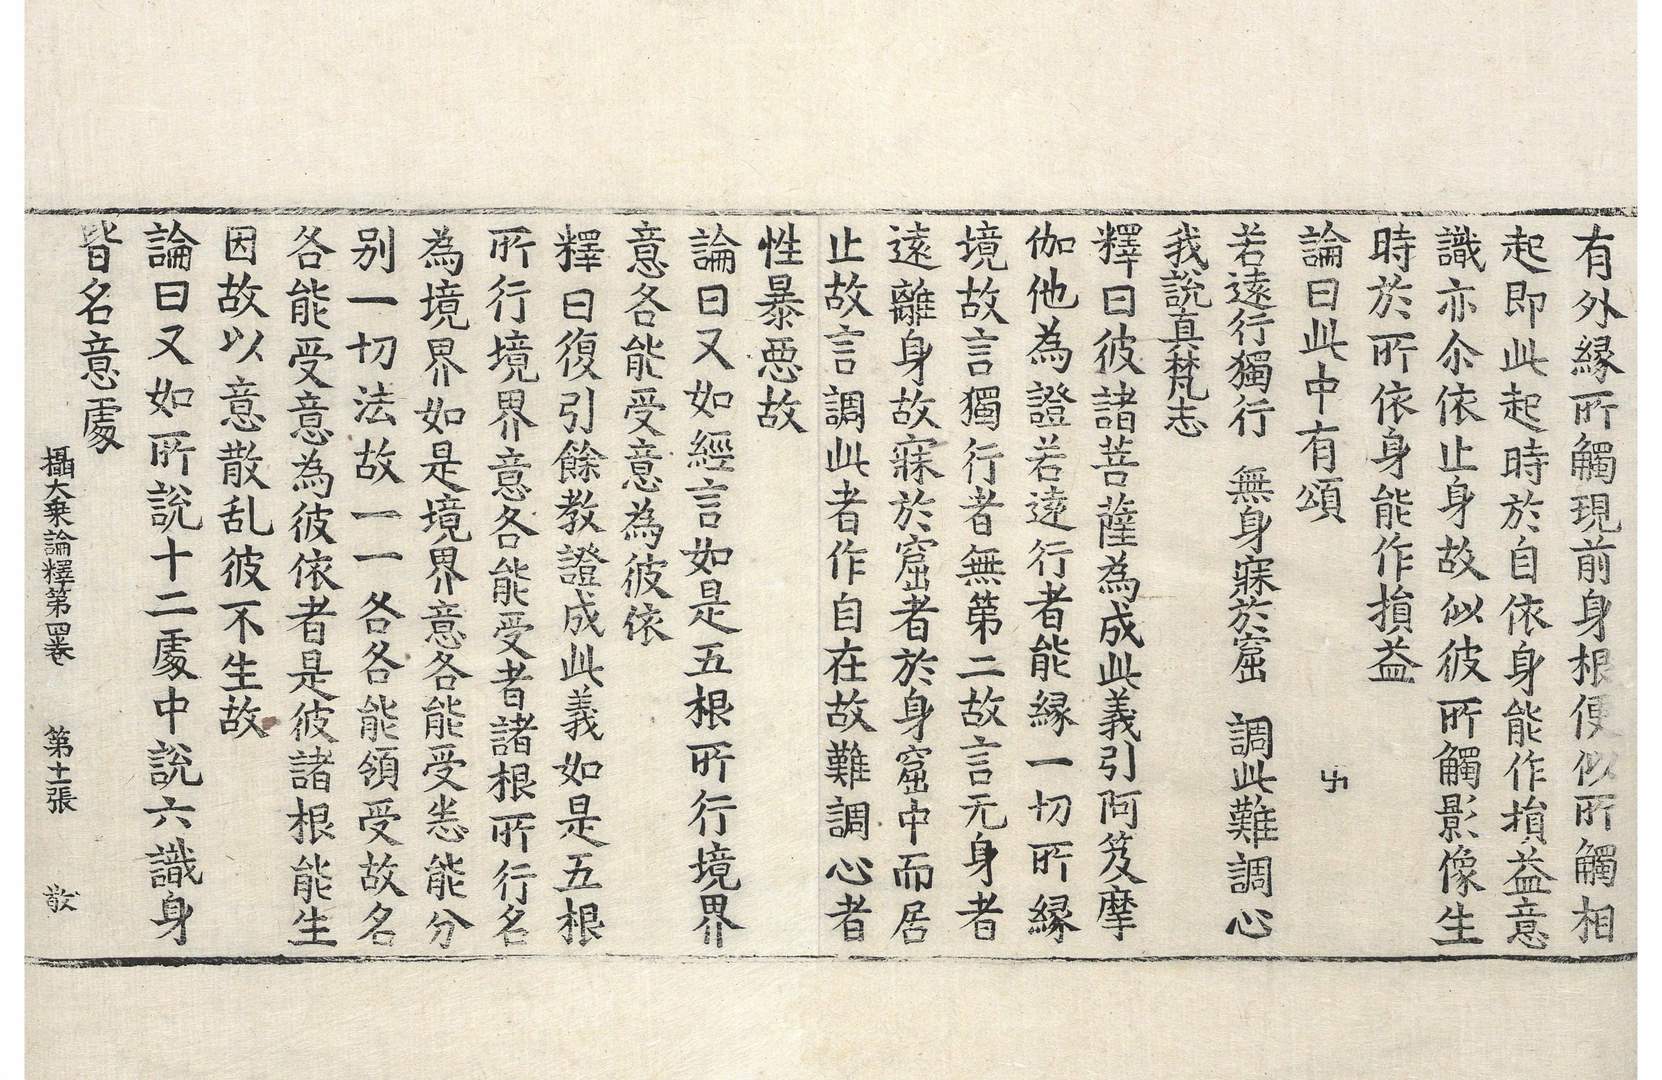 有外縁所觸現前身根便似所觸相
起即此起時於自依身能作損益意
識亦尒依止身故似彼所觸影像生
時於所依身能作損益
論曰此中有頌 卐
若遠行獨行 無身寐於窟 調此難調心
我說真梵志
釋曰彼諸菩薩為成此義引阿笈摩
伽他為證若遠行者能縁一切所縁
境故言獨行者無第二故言元身者
遠離身故寐於窟者於身窟中而居
止故言調此者作自在故難調心者
性暴惡故
論曰又如經言如是五根所行境界
意各能受意為彼依
釋曰復引餘教證成此義如是五根
所行境界意各能受者諸根所行名
為境界如是境界意各能受悉能分
别一切法故一一各各能領受故名
各能受意為彼依者是彼諸根能生
因故以意散乱彼不生故
論曰又如所說十二處中說六識身
皆名意處
攝大乗論釋第四卷 第十張 敢